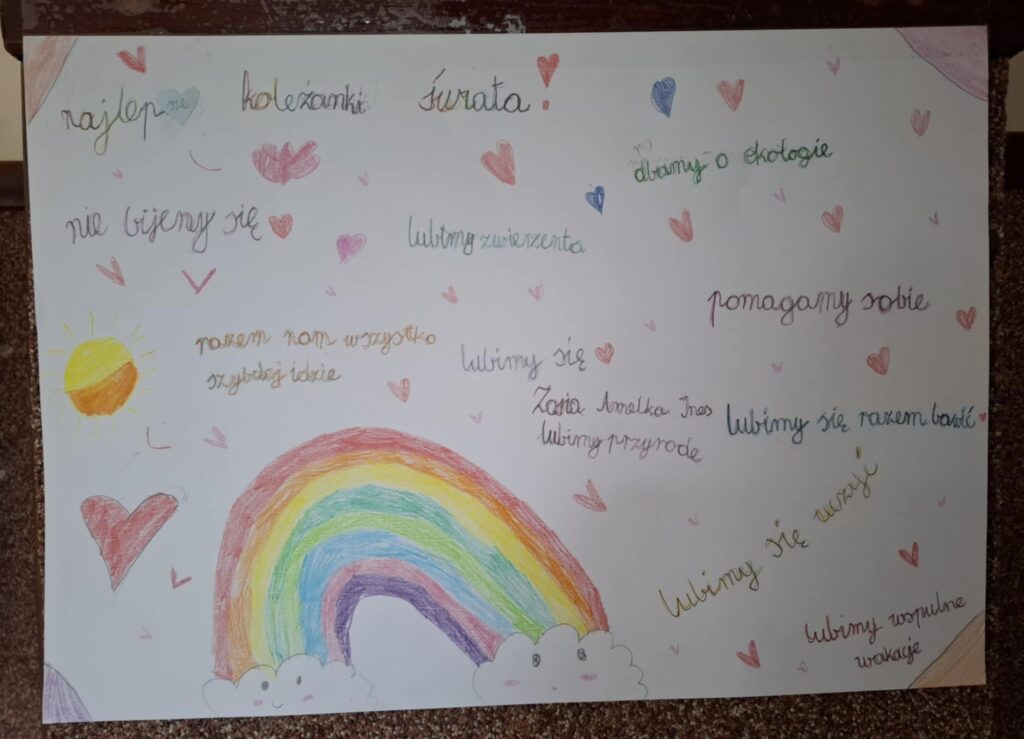 najlepsze koleżanki świata!
dbamy o ekologie
nie bijemy się
lubimy zwierzenta
pomagamy sobie
razem nam wszystko
szybciej idzie
lubimy się
Zosia Amelka Ines
lubimy przyrodę
lubimy się razem bawić
lubimy się uczyć
lubimy wspulne
wakacje